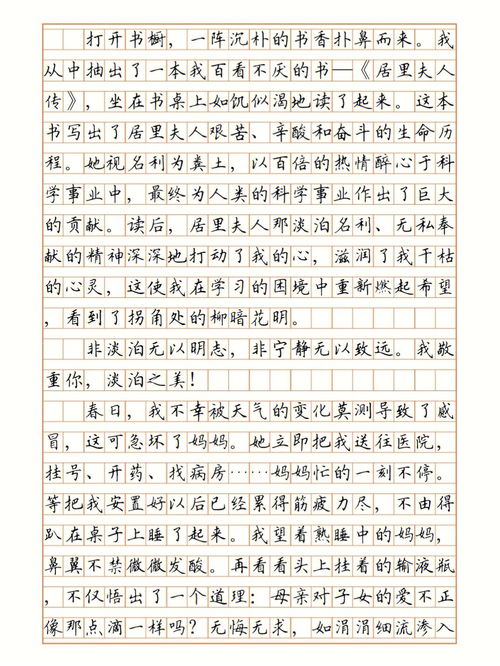 打开书橱，一阵沉朴的书香扑鼻而来。我
从中抽出了一本我百看不厌的书—《居里夫人
传》，坐在书桌上如饥似渴地读了起来。这本
书写出了居里夫人艰苦、辛酸和奋斗的生命历
程。她视名利为粪土，以百倍的热情醉心于科
学事业中，最终为人类的科学事业作出了巨大
的贡献。读后，居里夫人那淡泊名利、无私奉
献的精神深深地打动了我的心，滋润了我干枯
的心灵，这使我在学习的困境中重新燃起希望
，看到了拐角处的柳暗花明。
非淡泊无以明志，非宁静无以致远。我敬
重你，淡泊之美！
春日，我不幸被天气的变化莫测导致了感
冒，这可急坏了妈妈。她立即把我送往医院，
挂号、开药、找病房……妈妈忙的一刻不停。
等把我安置好以后已经累得筋疲力尽，不由得
趴在桌子上睡了起来。我望着熟睡中的妈妈，
鼻翼不禁微微发酸。再看看头上挂着的输液瓶
，不仅悟出了一个道理：母亲对子女的爱不正
像那点滴一样吗？无悔无求，如涓涓细流渗入